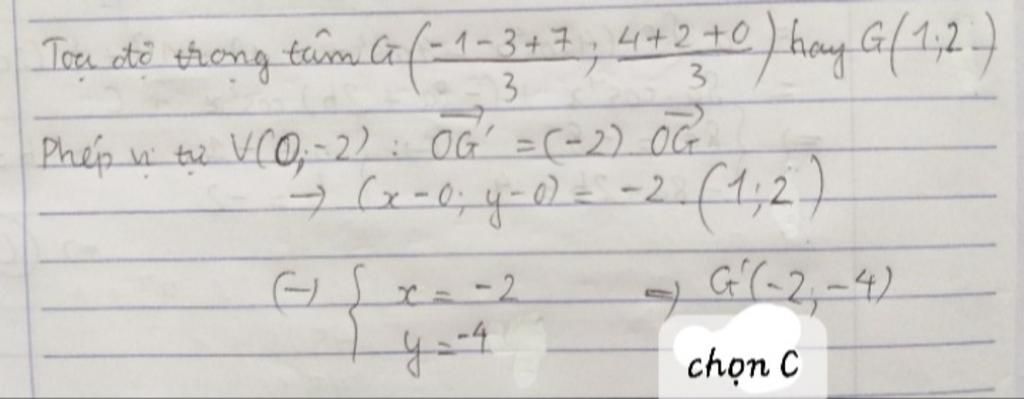 Toạ độ trọng tâm G(\frac{-1-3+7}{3}; \frac{4+2+0}{3}) hay G(1;2)
Phép vị tự V(O;-2): \overrightarrow{OG'} = (-2) \overrightarrow{OG}
→ (x-0; y-0) = -2.(1;2)
(→ { x = -2 ⇒ G'(-2;-4)
y = -4
chọn C